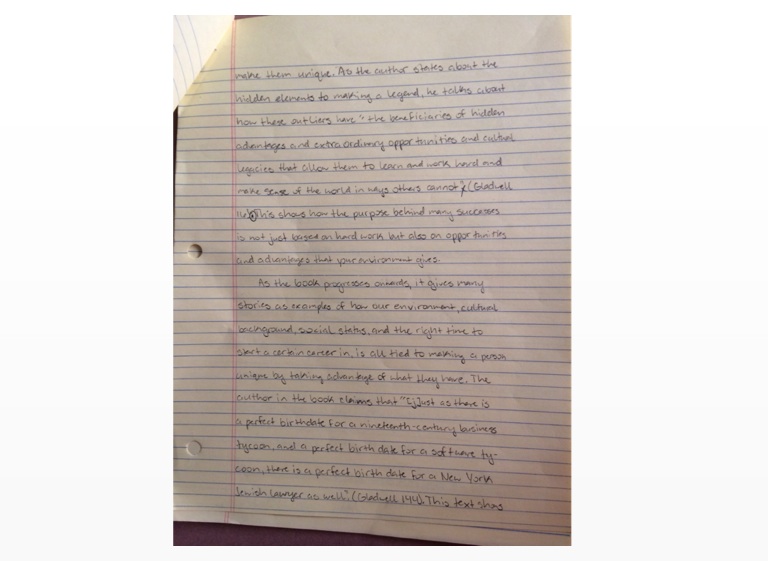 make them unique. As the author states about the
hidden elements to making a legend, he talks about
how these outliers have "the beneficiaries of hidden
advantages and extraordinary opportunities and cultural
legacies that allow them to learn and work hard and
make sense of the world in ways others cannot" (Gladwell
This shows how the purpose behind many successes
is not just based on hard work but also on opportunities
and advantages that your environment gives.
As the book progresses onwards, it gives many
stories as examples of how our environment, cultural
background, social status, and the right time to
start a certain career in, is all tied to making a person
unique by taking advantage of what they have. The
author in the book claims that "[j]ust as there is
a perfect birthdate for a nineteenth-century business
tycoon, and a perfect birth date for a software ty-
coon, there is a perfect birth date for a New York
Jewish lawyer as well" (Gladwell 144). This text shows